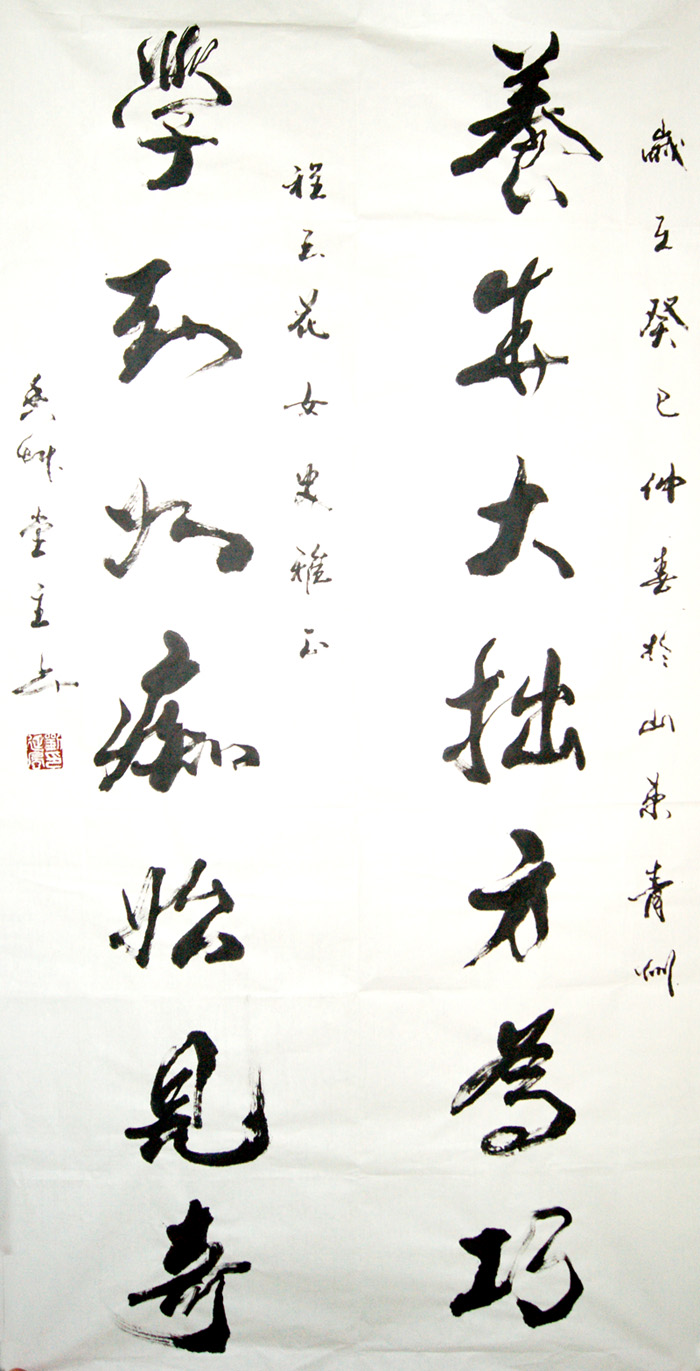 歲在癸巳仲春於山東青州
養成大拙方為巧
程玉花女史雅正
學到如痴始見奇
堂主